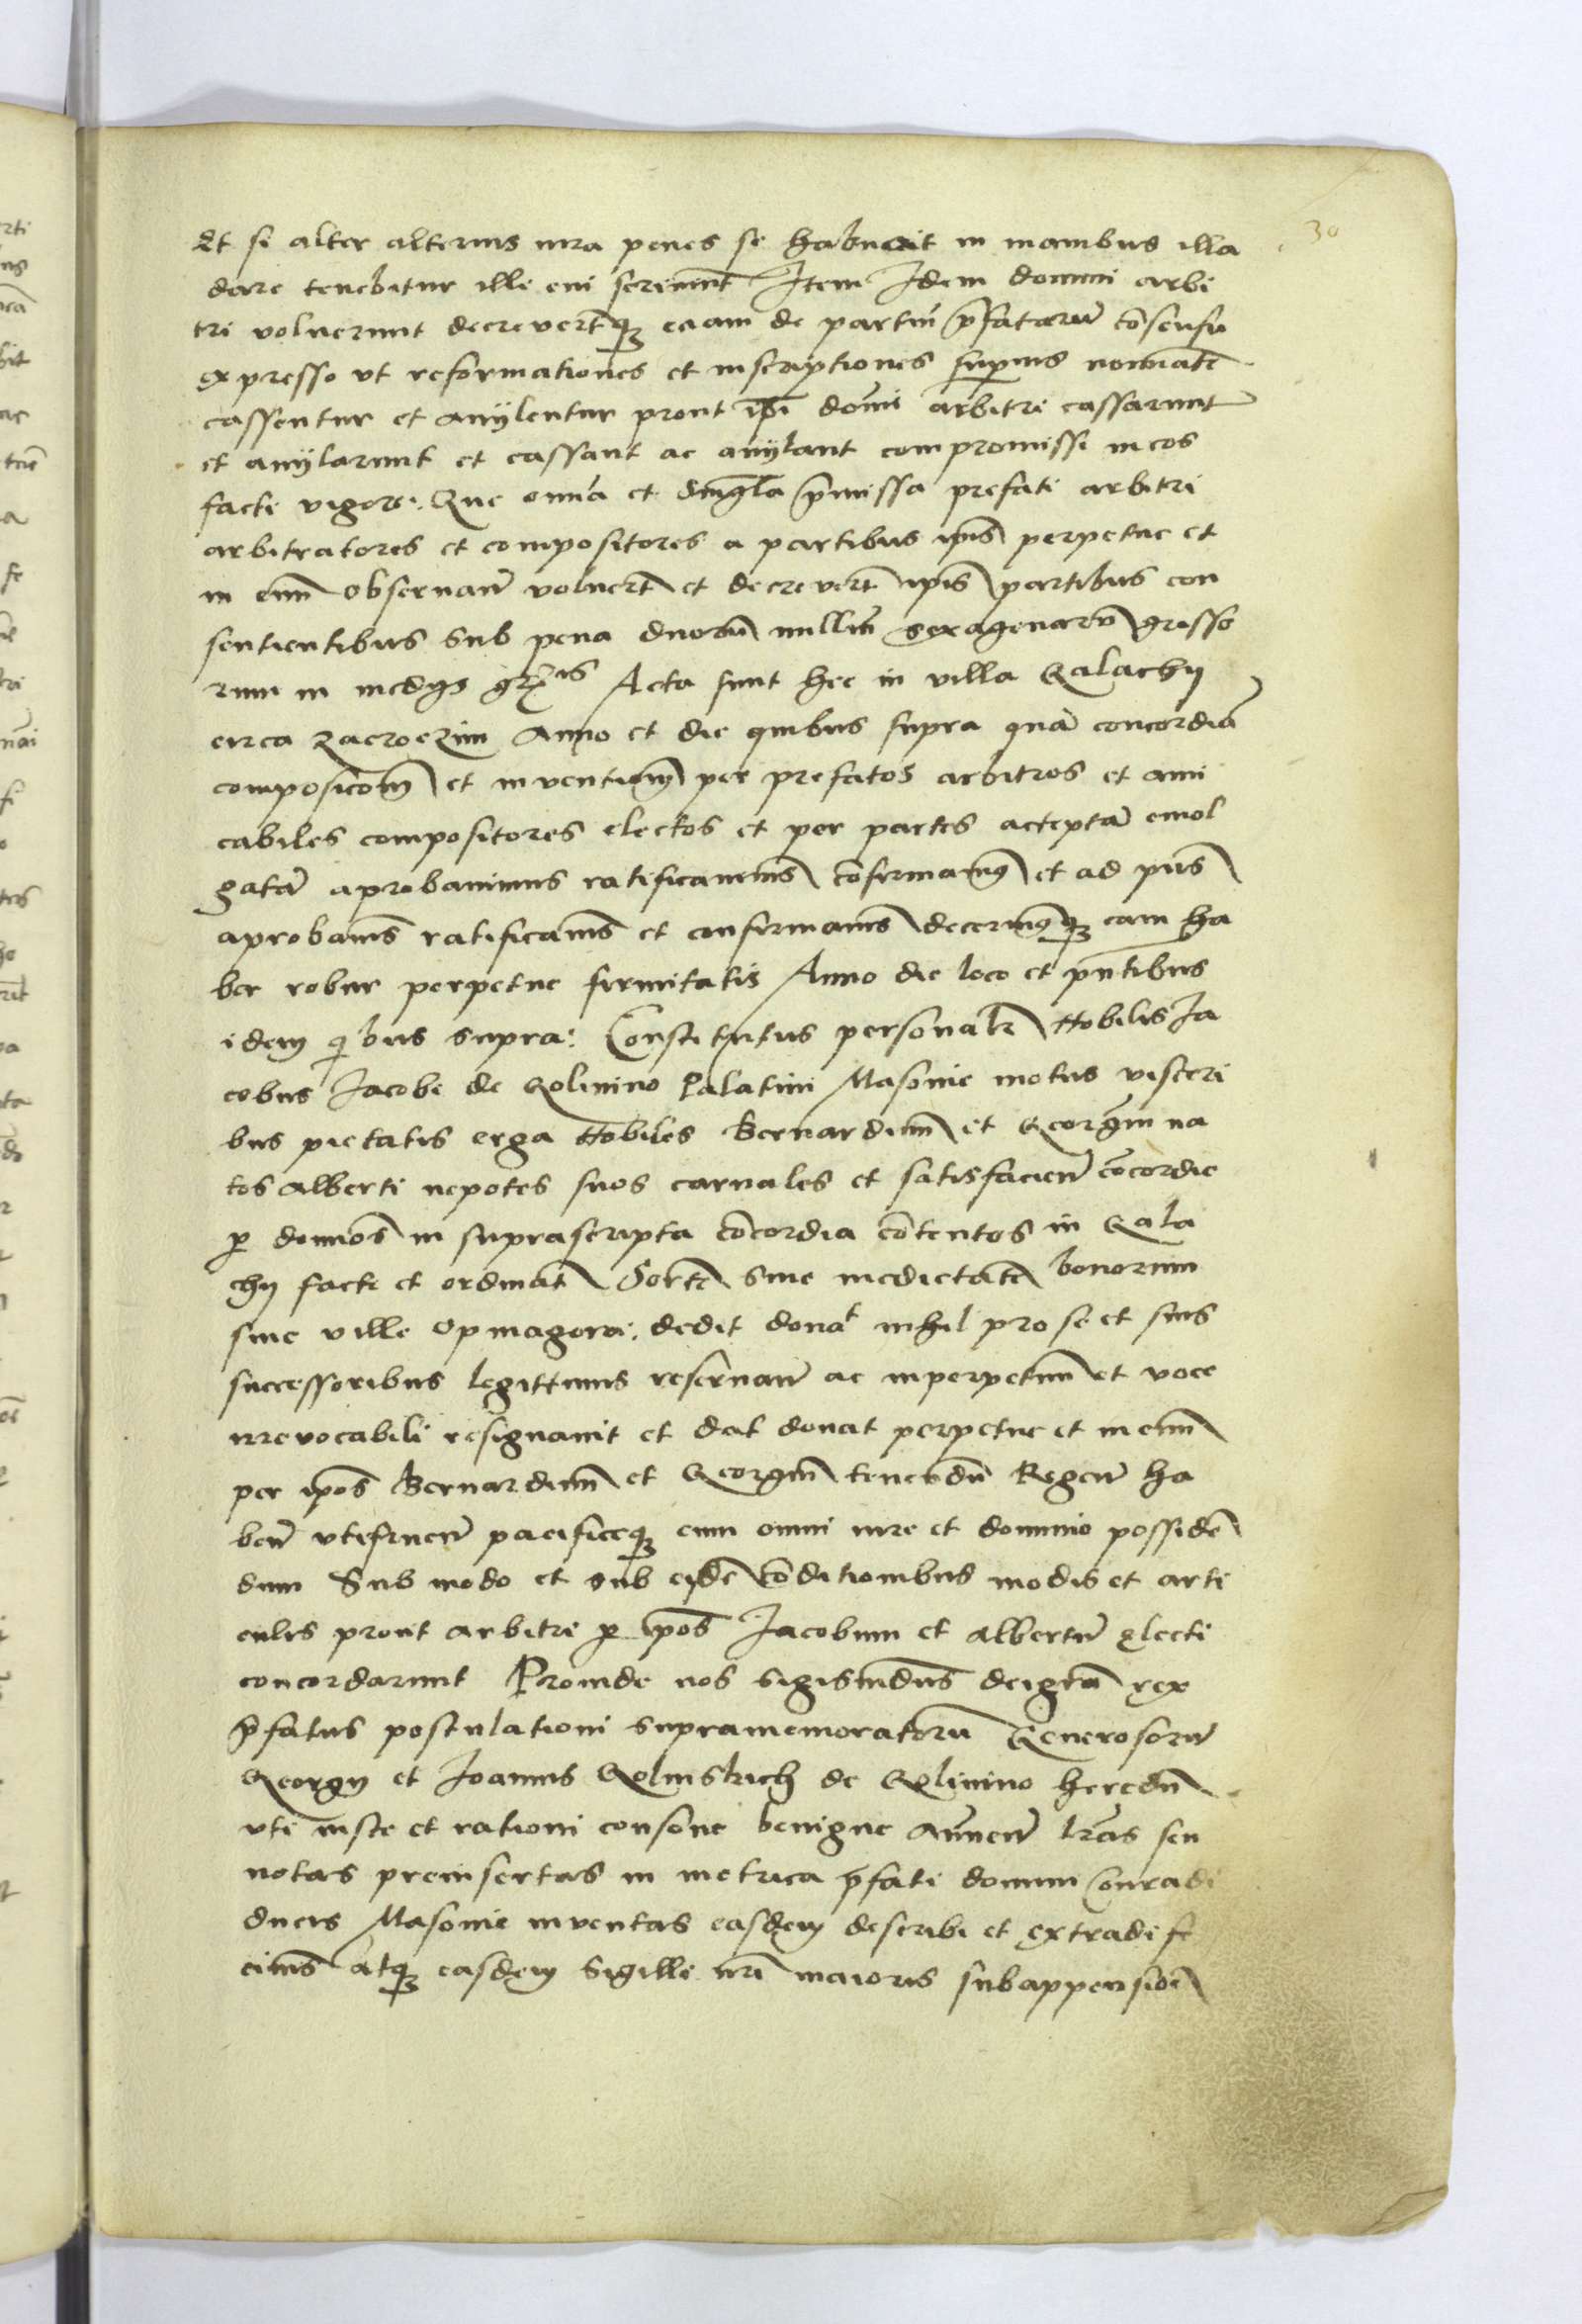 30
Et si alter alterius iura penes se habuerit in manibus illa
dare tenebitur illi cui seruiunt Item Idem domini arbi
tri voluerunt decreuertq̃ eciam de partiū p̄fatarū cōsensu
expresso vt reformationes et inscriptiones superius noīatē
cassentur et anylentur prout ip̄i dom̄i arbitri cassarunt
et anylarunt et cassant ac anylant compromissi in eos
facti vigore. Que om̄ia et singl̄a p̄missa prefati arbitri
arbitratores et compositores a partibus ip̄is perpetue et
in euū obseruañ voluert̄ et decreuert̄ ip̄is partibus con
sentientibus Sub pena duorū milliū sexagenarū grosso
rum in medys
Acta sunt hec in villa Galachy
circa zacroczim Anno et die quibus supra quā concordiā
composicōm̄ et inventiom̄ per prefatos arbitros et ami
cabiles compositores electos et per partes acceptā emol
gatā aprobauimus ratificauimꝰ cōfirmamꝰ et ad p̄ns
aprobamꝰ ratificamꝰ et confirmamꝰ decernimꝰq̃ eam ha
ber robur perpetue firmitatis Anno die loco et pn̄tibus
idem quibus supra: Constitutus personalr̄ Nobilis Ja
cobus Jacobi de Golinino Palatini Masouie motus visceri
bus pietatis erga Nobiles Bernardinū et Georgiū na
tos Alberti nepotes suos carnales et satisfacieñ cōcordie
p̱ domīos in suprascripta cōcordia cōtentos in Gala
chy facte et ordinat̄ Sortē siue medietatē bonorum
siue ville Opinagora: dedit donat nihil pro se et suis
successoribus legittimis reseruañ ac inperpetuū et voce
irreuocabili resignauit et dat donat perpetue et in euū
per ip̄os Bernardinū et Georgiū tenendū Regeñ ha
beñ vtifrueñ pacificeq̃ cum omni iure et dominio possidē
dum Sub modo et sub eisdē cōditionibus modis et arti
culis prout arbitri p̱ ip̄os Jacobum et Albertū electi
concordarunt Proinde nos Sigismūdus dei grā rex
p̄fatus postulationi supramemoratorū Generosorū
Georgy et Joannis Golinskich de Golinino heredū
vti iuste et rationi consone benigne Annueñ lr̄as seu
notas preinsertas in metrica p̄fati domini Conradi
ducis Masouie inuentas easdem describi et extradi fe
cimꝰ atq̃ easdem Sigilli nr̄i maioris subappensioē